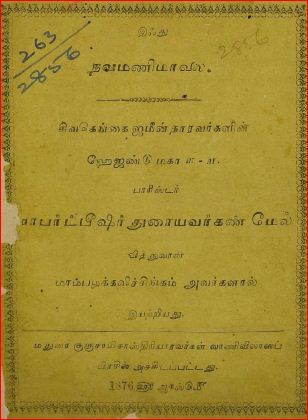 263
2856
2856
இஃது
நவமணிமாலை.
சிவகெங்கை ஜமீன் தாரவர்களின்
ஹேஜண்டு மகா ௱-௱-
பாரிஸ்டர்
ராபர்ட்பீஷர் துரையவர்கள் மேல்
வித்துவான்
மாம்பழக்கவிச்சிங்கம் அவர்களால்
இயற்றியது.
மதுரை குருசாமிசாஸ்திரியாரவர்கள் வாணிவிலாஸப்
பிரசில் அச்சிடப்பட்டது.
1876 ௵ ஆகஸ்டு ௴